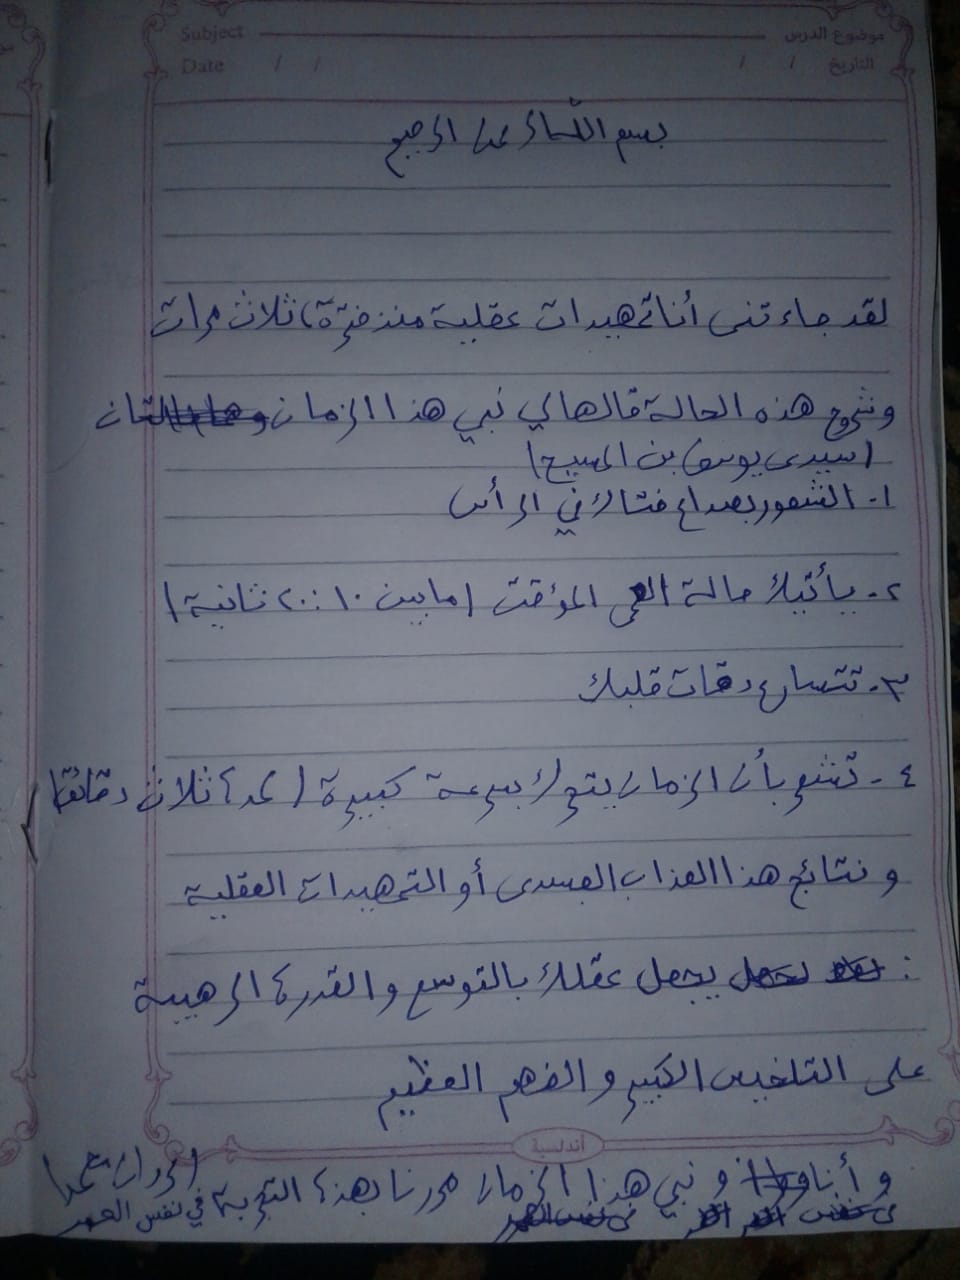 Subject موضوع الدرس
Date / / التاريخ / /
بسم الله الرحمن الرحيم
لقد جاءتني أنا تمهيدات عقلية منذ فترة، ثلاث مرات
وشروح هذه الحالة قالها لي نبي هذا الزمان
(سيدى يوسف بن المسيح)
١- الشعور بصداع فتاك في الرأس
٢- يأتيك حالة العمى المؤقت (ما بين ١٠: ٢٠ ثانية)
٣- تتسارع دقات قلبك
٤- تشعر بأن الزمان يتحرك بسرعة كبيرة (لمدة ثلاث دقائق)
و نتائج هذا العذاب الجسدى أو التمهيدات العقلية
: يجعل عقلك بالتوسع والقدرة الرهيبة
على التلخيص الكبير و الفهم العظيم
أندلسية
و أنا و نبي هذا الزمان مررنا بهذه التجربة في نفس العمر